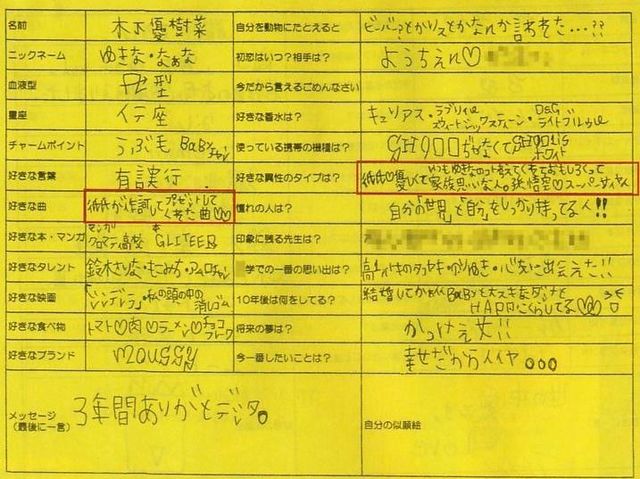 名前 木下優樹菜 自分を動物にたとえると ビーバー?とかリスとかなんか言われた…??
ニックネーム ゆきな・なぁな 初恋はいつ?相手は? ようちえん♡
血液型 型 今だから言えるごめんなさい
星座 イテ座 好きな香水は? キュリアス・ラブリィ D&G ライトブルゥ
チャームポイント うぶ毛 BaBy 使っている携帯の機種は? SH900iじゃなくて SH901iS ホワイト
好きな言葉 有言実行 好きな異性のタイプは? 彼氏♡優しくて いつもゆきなのコト考えてくれておもしろくって 家族思いな人。孫悟空♡スーパーサイヤ人
好きな曲 彼氏が作詞してプレゼントしてくれた曲♡♡ 憧れの人は? 「自分の世界」と「自分」をしっかり持ってる人!!
好きな本・マンガ マンガ クロマティ高校 本 GLITTER 印象に残る先生は?
好きなタレント 鈴木さりな・もこみち・アムロ 学での一番の思い出は? 出会えた!!
好きな映画 「シンデレラ」・私の頭の中の消しゴム 10年後は何をしてる? 結婚してかわいいBaByと大スキなダンナとHAPPyにくらしてる♡♡
好きな食べ物 トマト♡肉♡ラーメン♡チョコフレーク 将来の夢は? かっけぇ女!!
好きなブランド moussy 今一番したいことは? 幸せだからイイヤ。。。
メッセージ (最後に一言) 3年間ありがとデシタ。 自分の似顔絵